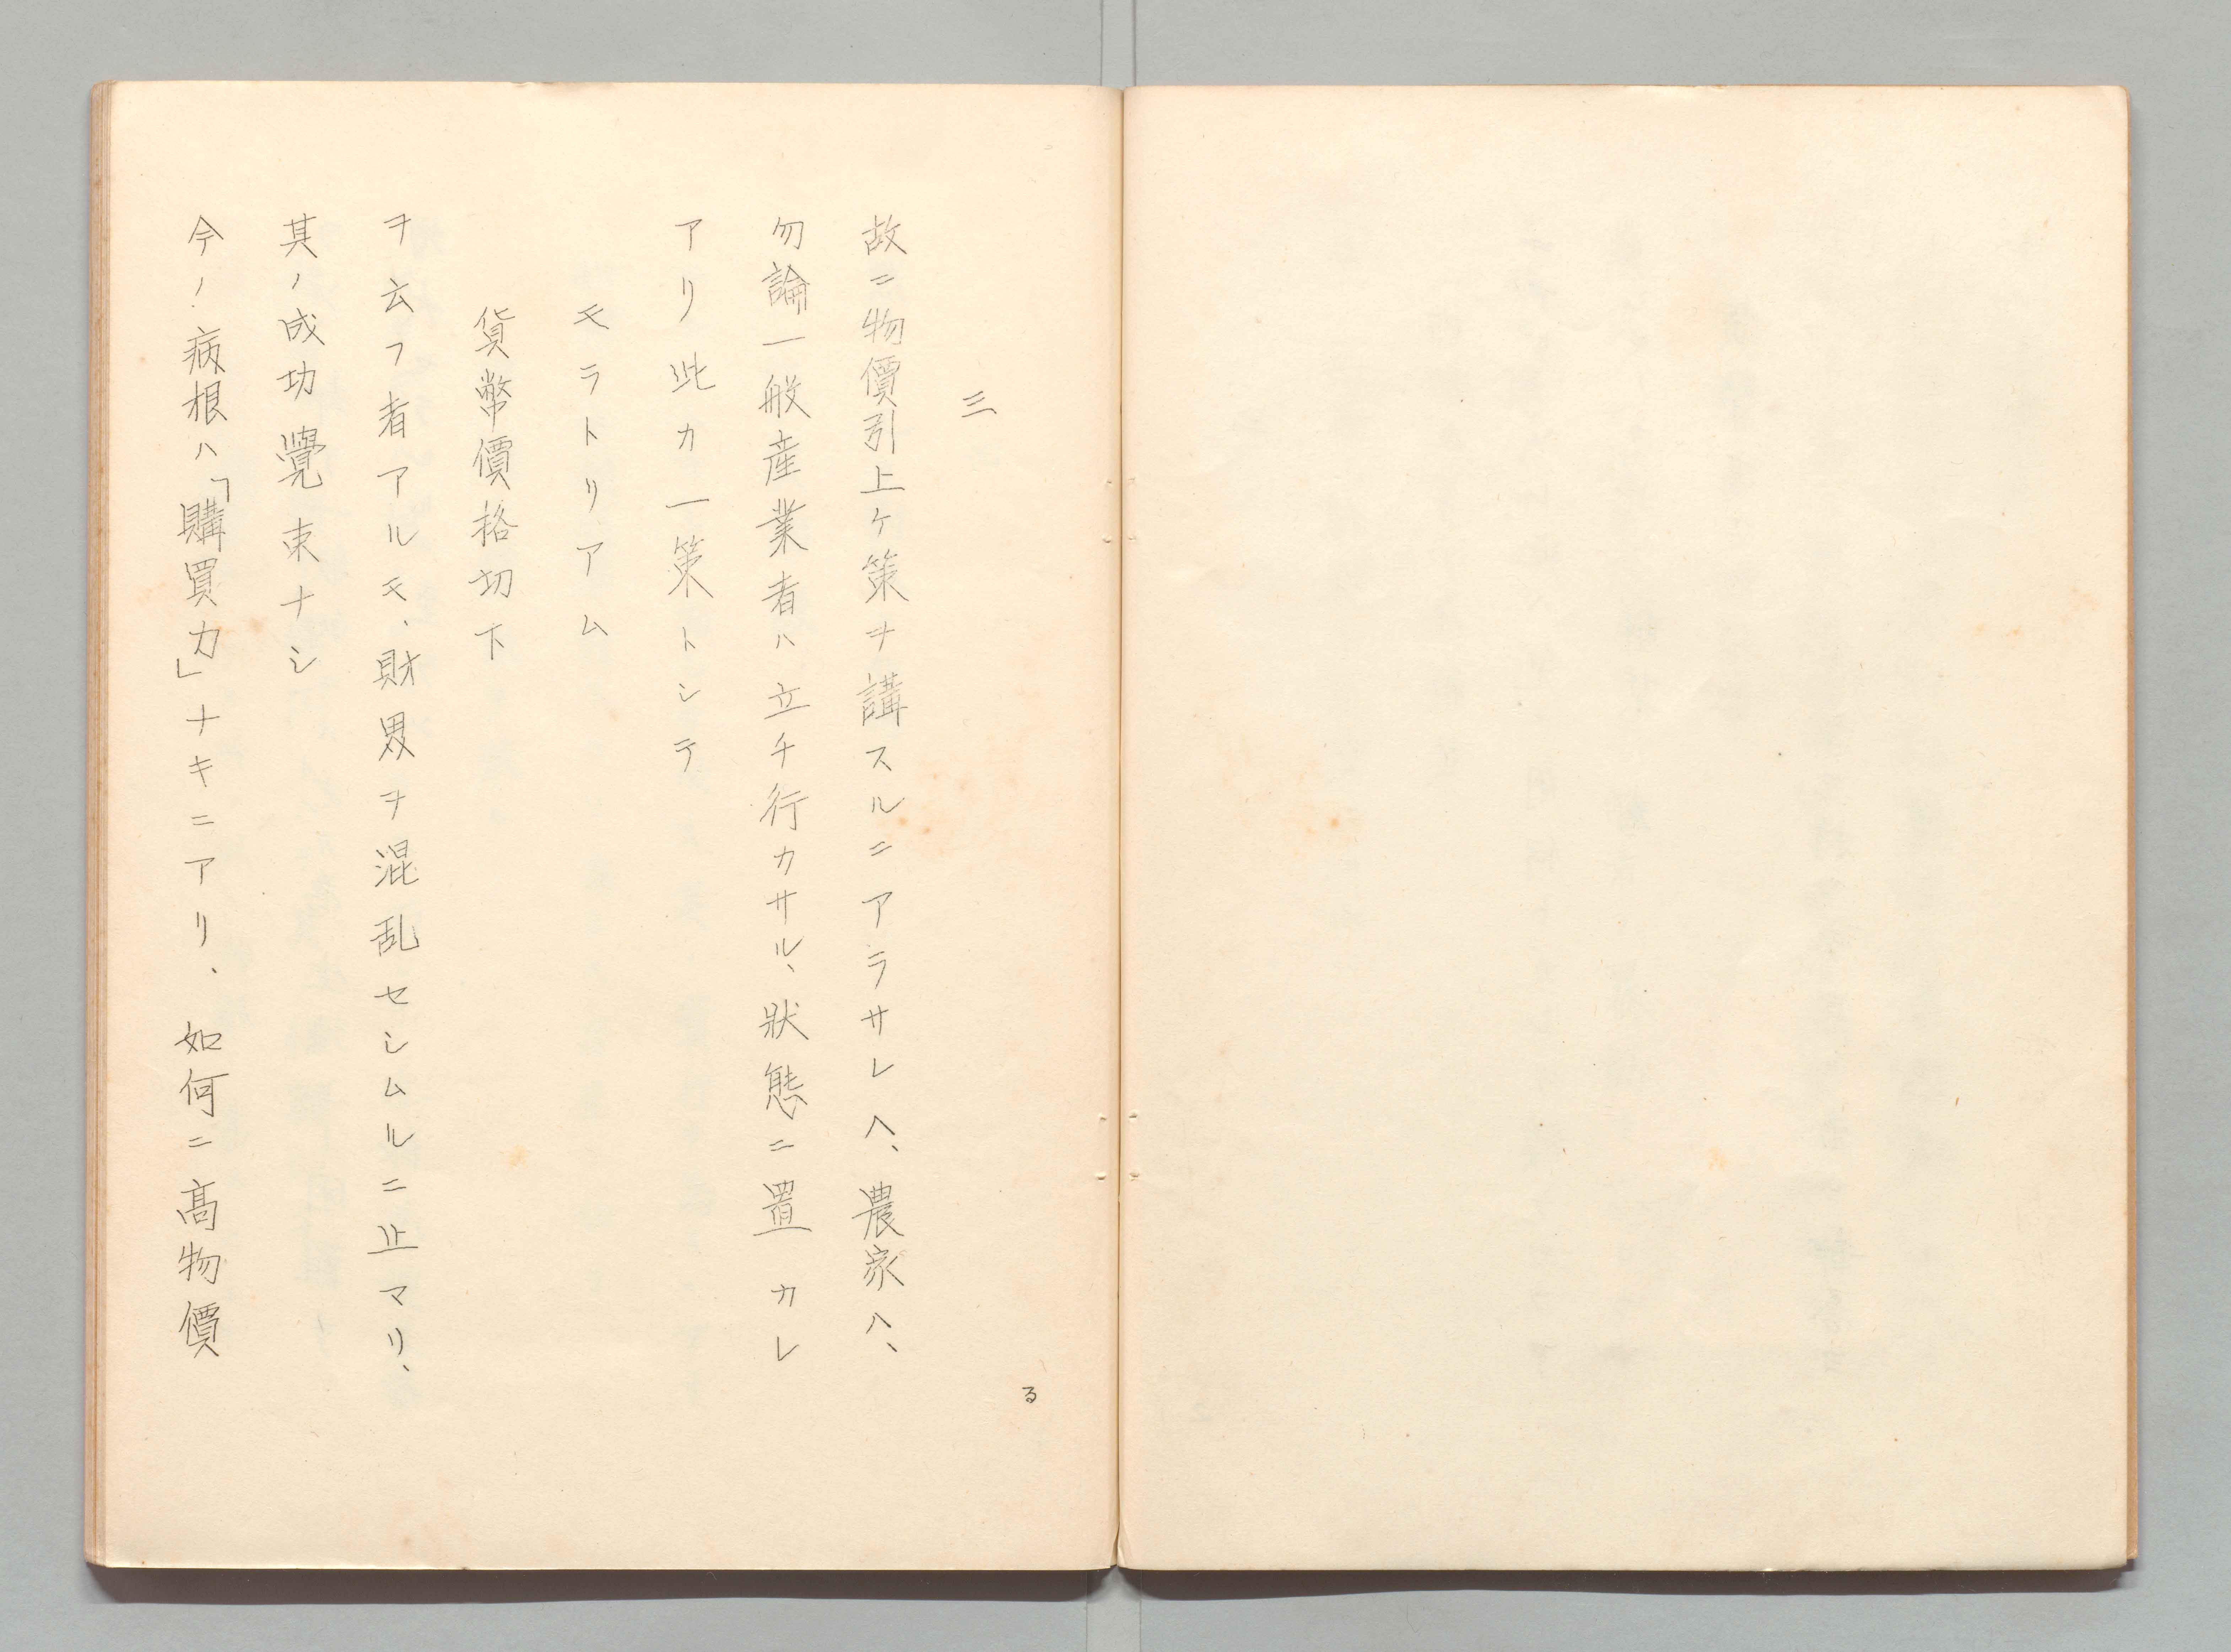 三
故ニ物價引上ケ策ヲ講スルニアラサレヘ、農家ハ、
勿論一般産業者ハ立チ行カサル、狀態ニ置カレ
アリ此カ一策トシテ
モラトリアム
貨幣價格切下
ヲ云フ者アルモ、財界ヲ混乱セシムルニ止マリ、
其ノ成功覺束ナシ
今ノ病根ハ「購買力」ナキニアリ、如何ニ高物價
る